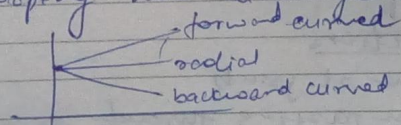 forward curved
radial
backward curved